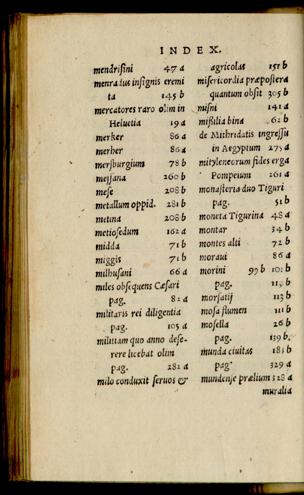 INDEX.
mendrisini 47 a
menradus insignis eremi
ta 145 b
mercatores raro olim in
Heluetia 19 a
merher 86 a
merher 86 a
mersburgium 78 b
messana 260 b
mese 208 b
metallum oppid. 281 b
metina 208 b
metiosedum 162 a
midda 71 b
miggis 71 b
milhusani 66 a
miles obsequens Cæsari
pag. 82 a
militaris rei diligentia
pag. 105 a
militiam quo anno dese-
rere licebat olim
pag. 282 a
milo conduxit seruos &
agricolas 151 b
misericordia præpostera
quantum obsit 305 b
misni 141 a
missilia bina 62 b
de Mithridatis ingressu
in Aegyptum 275 a
mityleneorum fides erga
Pompeium 261 a
monasteria duo Tiguri
pag. 51 b
moneta Tigurina 48 a
montar 34 b
montes alti 72 b
moraui 86 a
morini 99 b 102 b
pag. 115 b
morsatij 113 b
mosa flumen 111 b
mosella 26 b
pag. 139 b.
munda ciuitas 185 b
pag 329 a
mundense prælium 328 a
muralia